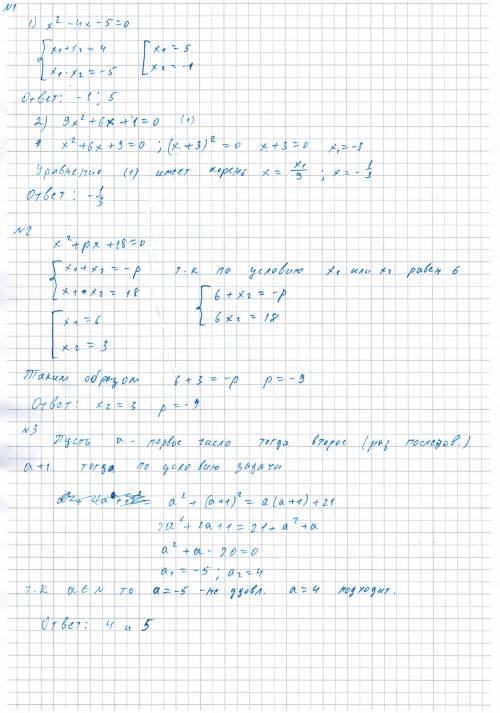 №1
1) x² - 4x - 5 = 0
{ x₁ + x₂ = 4 [ x₁ = 5
{ x₁ · x₂ = -5 [ x₂ = -1
Ответ: -1; 5
2) 9x² + 6x + 1 = 0 (1)
x² + 6x + 9 = 0 ; (x + 3)² = 0 x + 3 = 0 x₁ = -3
Уравнение (1) имеет корень x = x₁/9 ; x = -1/3
Ответ: -1/3
№2
x² + px + 18 = 0
{ x₁ + x₂ = -p т.к по условию x₁ или x₂ равен 6
{ x₁ · x₂ = 18 { 6 + x₂ = -p
[ x₁ = 6 { 6x₂ = 18
[ x₂ = 3
Таким образом 6 + 3 = -p p = -9
Ответ: x₂ = 3 p = -9
№3
Пусть a - первое число тогда второе (раз последов.)
a+1 тогда по условию задачи
a² + (a+1)² = a(a+1) + 21
2a² + 2a + 1 = 21 + a² + a
a² + a - 20 = 0
a₁ = -5 ; a₂ = 4
т.к a ∈ N то a = -5 - не удовл. a = 4 подходит.
Ответ: 4 и 5